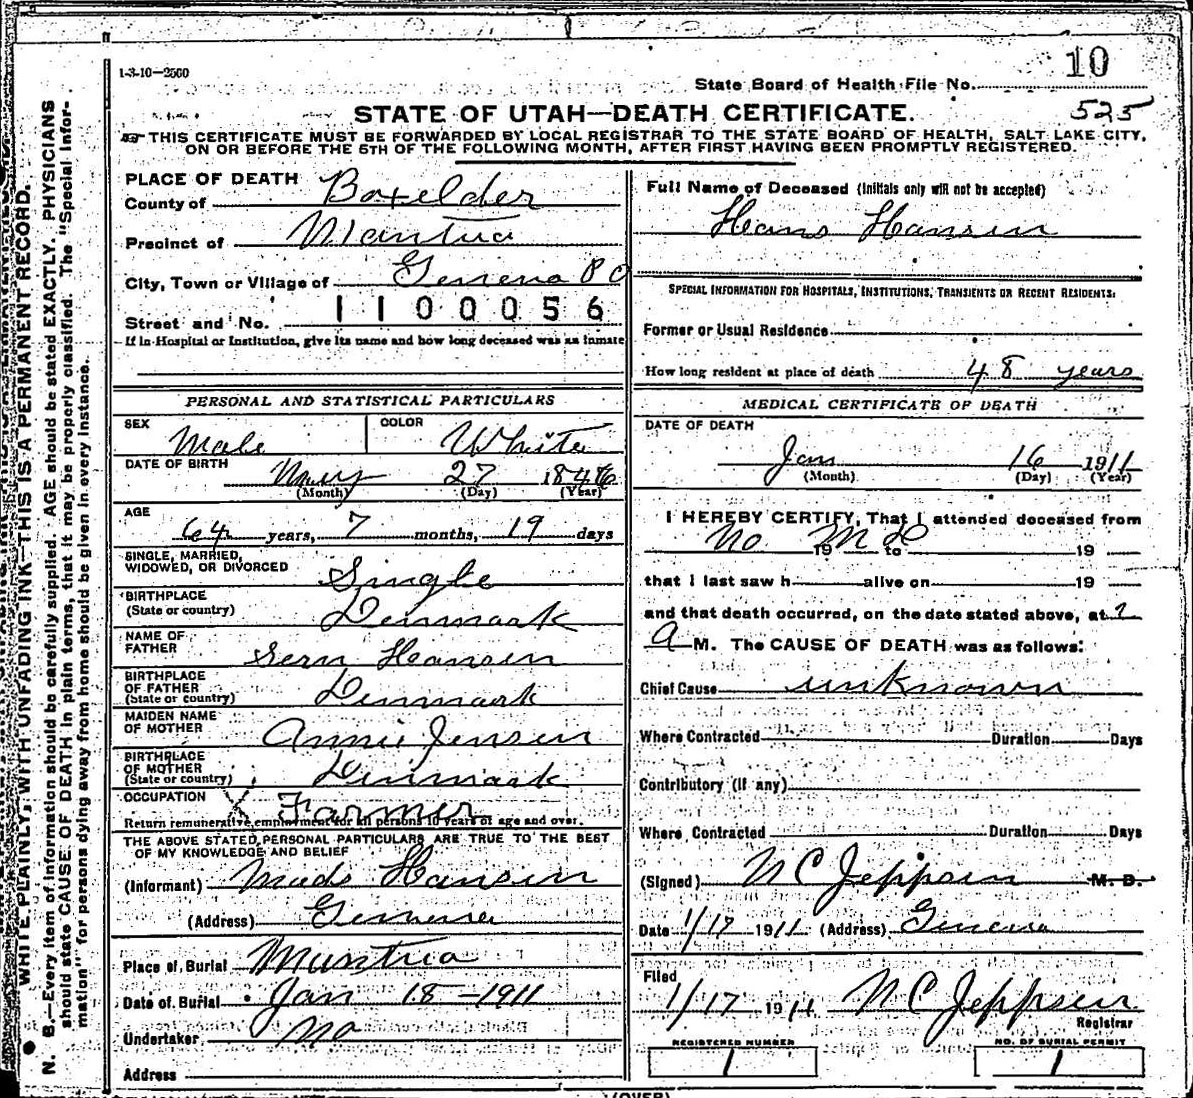 1-3-10—2500
10
State Board of Health File No.
STATE OF UTAH—DEATH CERTIFICATE.
525
THIS CERTIFICATE MUST BE FORWARDED BY LOCAL REGISTRAR TO THE STATE BOARD OF HEALTH, SALT LAKE CITY,
ON OR BEFORE THE 5TH OF THE FOLLOWING MONTH, AFTER FIRST HAVING BEEN PROMPTLY REGISTERED.
WRITE PLAINLY, WITH UNFADING INK—THIS IS A PERMANENT RECORD.
N. B.—Every item of information should be carefully supplied. AGE should be stated EXACTLY. PHYSICIANS
should state CAUSE OF DEATH in plain terms, that it may be properly classified. The "Special Infor-
mation" for persons dying away from home should be given in every instance.
PLACE OF DEATH
County of Boxelder
Precinct of Mantua
City, Town or Village of Geneva P O
1 1 0 0 0 5 6
Street and No.
If in Hospital or Institution, give its name and how long deceased was an inmate
PERSONAL AND STATISTICAL PARTICULARS
SEX Male
COLOR White
DATE OF BIRTH 27 1846
(Month) (Day) (Year)
AGE
64 years, 7 months, 19 days
SINGLE, MARRIED,
WIDOWED, OR DIVORCED Single
BIRTHPLACE
(State or country) Denmark
NAME OF
FATHER Sern Hansen
BIRTHPLACE
OF FATHER
(State or country) Denmark
MAIDEN NAME
OF MOTHER Annie Jensen
BIRTHPLACE
OF MOTHER
(State or country) Denmark
OCCUPATION X Farmer
Return remunerative employment for all persons 10 years of age and over.
THE ABOVE STATED PERSONAL PARTICULARS ARE TRUE TO THE BEST
OF MY KNOWLEDGE AND BELIEF
(Informant) Mads Hansen
(Address) Geneva
Place of Burial Mantua
Date of Burial Jan 18-1911
Undertaker No
Address
Full Name of Deceased (Initials only will not be accepted)
Hans Hansen
SPECIAL INFORMATION FOR HOSPITALS, INSTITUTIONS, TRANSIENTS OR RECENT RESIDENTS:
Former or Usual Residence
How long resident at place of death 48 years
MEDICAL CERTIFICATE OF DEATH
DATE OF DEATH
Jan 16 1911
(Month) (Day) (Year)
I HEREBY CERTIFY, That I attended deceased from
No 19 M D to 19
that I last saw h alive on 19
and that death occurred, on the date stated above, at 2
A M. The CAUSE OF DEATH was as follows:
Chief Cause unknown
Where Contracted Duration Days
Contributory (if any)
Where Contracted Duration Days
(Signed) N C Jeppsen M. D.
Date 1/17 1911 (Address) Geneva
Filed
1/17 1911 N C Jeppsen
Registrar
REGISTERED NUMBER
1
NO. OF BURIAL PERMIT
1
(OVER)